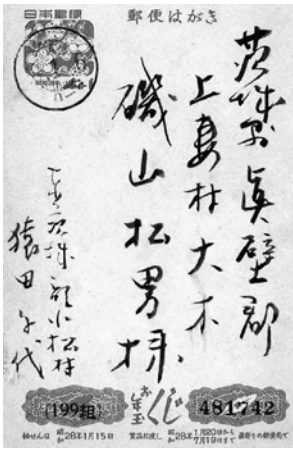 日本郵便
郵便はがき
茨城縣眞壁郡
上妻村大木
磯山松男様
猿田千代
(199組)
お年玉くじ
481742
抽せん日 昭和28年1月15日
賞品お渡し 昭和28年1月20日から7月19日まで
最寄りの郵便局で